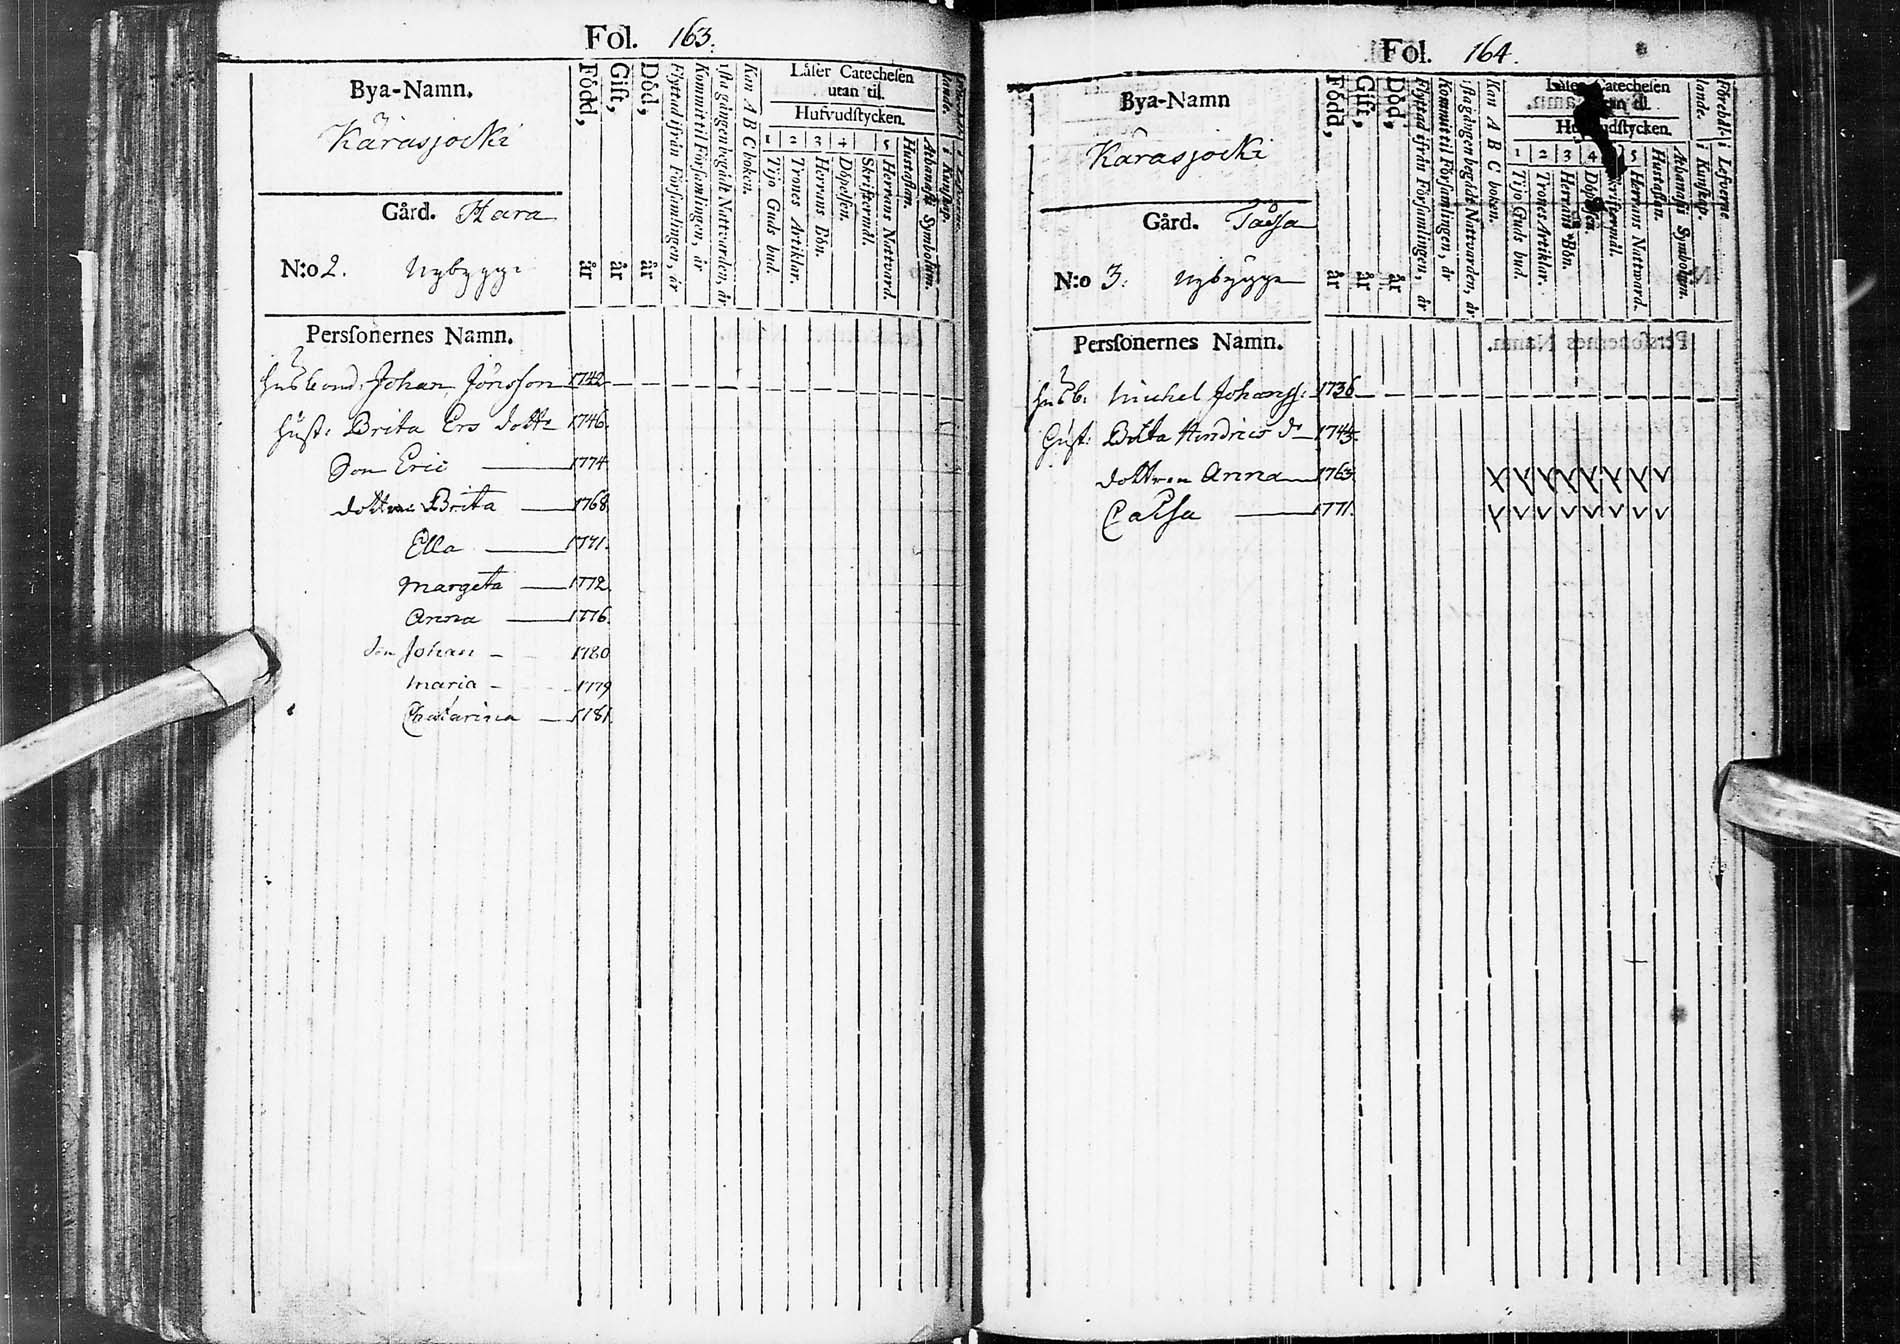 Fol. 163.
Bya-Namn.
Karasjocki
Gård. Hara
N:o 2. Nybygge
Född, år
Gift, år
Död, år
Flyttad ifrån Församlingen, år
Kommit til Församlingen, år
1sta gången begådt Nattvarden, år
Kan A B C boken.
Låser Catechesen
utan til.
Hufvudstycken.
1 2 3 4 5
Tijo Guds bud.
Trones Artiklar.
Herrans Bön.
Döpelsen.
Skriftermål.
Herrans Nattvard.
Hustaflan.
Athanasii Symbolum.
Personernes Namn.
Husbond: Johan Jönsson 1742
Hust: Brita Ers dotter 1746.
Son Eric 1774
dottren Brita 1768
Ella 1771.
Margeta 1772
Anna 1776
Son Johan 1780
Maria 1779
Chatarina 1781
Fol. 164.
Bya-Namn
Karasjocki
Gård.
N:o 3. Nybygge
Född, år
Gift, år
Död, år
Flyttad ifrån Församlingen, år
Kommit til Församlingen, år
1sta gången begådt Nattvarden, år
Kan A B C boken.
Catechesen
Hufvudstycken.
1 2 3 4 5
Tijo Guds bud.
Trones Artiklar.
Herrans Bön.
Döpelsen.
Skriftermål.
Herrans Nattvard.
Hustaflan.
Athanasii Symbolum.
Förehål-
lande.
i Kunskap.
i Lefverne
Personernes Namn.
Husb: Michel Johanss: 1736
Hust: Brita Hindrics d:
dottren Anna 1763
Caisa 1771.